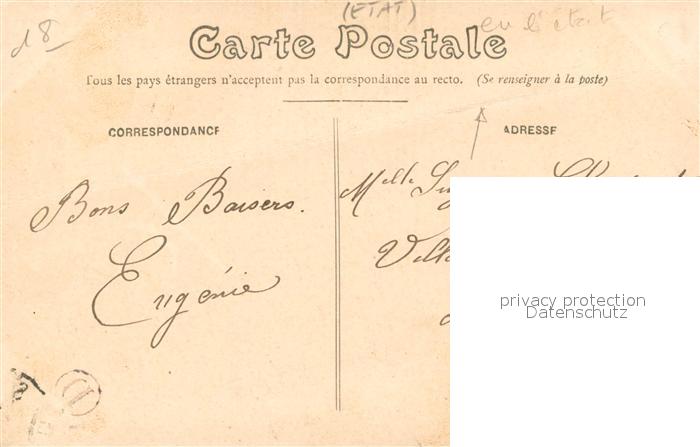 18
(ETAT) en l'état
Carte Postale
Tous les pays étrangers n'acceptent pas la correspondance au recto. (Se renseigner à la poste)
CORRESPONDANCE
ADRESSE
Bons Baisers.
Eugénie
Melle
privacy protection
Datenschutz
D